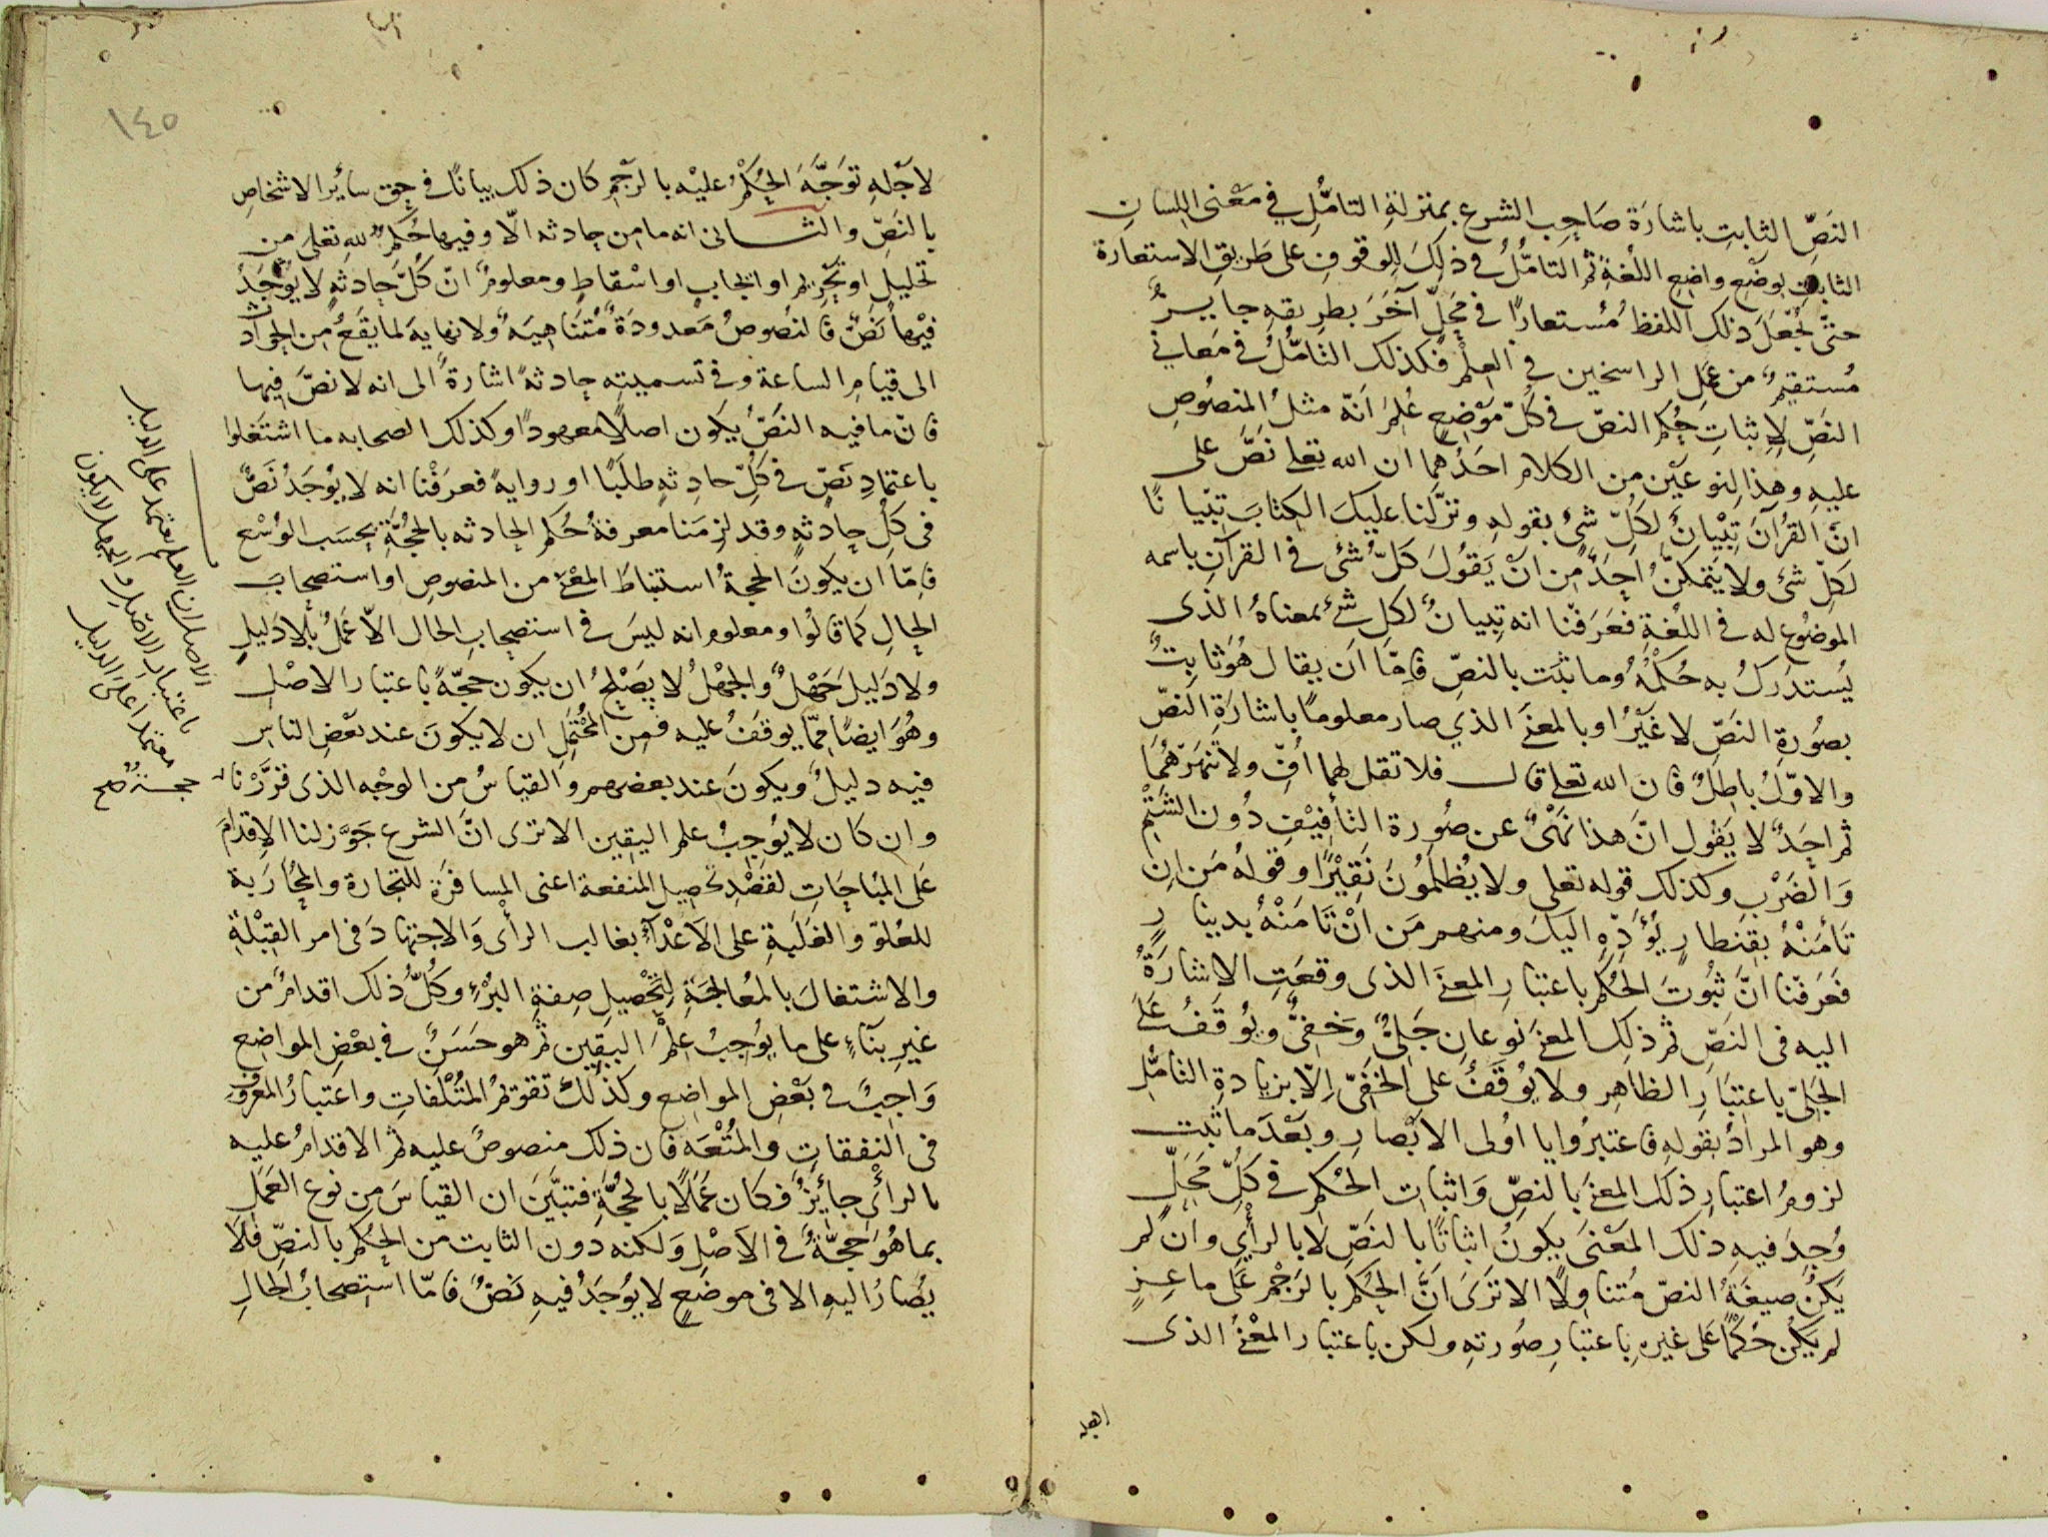 النَصِّ الثابتِ باشارَة صَاحِب الشرع بمنزلةِ التامُّلِ في مَعْنى اللِسانِ
الثابت بوضْعِ واضِعِ اللُغةِ ثم التامُّلُ في ذلِكَ لِلوقوفِ على طَريقِ الاستعارة
حتّى نُجْعَلَ ذلك اللفظُ مُستعارًا في مَحَلٍّ آخَرَ بطرِيقهِ جايزٌ
مُستقيمٌ من عَمَلِ الراسخين في العِلْمِ فكذلك التامُّلُ في مَعاني
النَصِّ لاِثباتِ حُكمِ النصّ في كلّ مَوْضعٍ عُلِمَ اَنّه مثلُ المنصُوصِ
عليه وهذا لِنوعَيْن من الكلام احَدُهما ان الله تعلى نَصَّ على
انَّ القُرآنَ تِبْيَانٌ لكلّ شئٍ بقوله ونزّلنا عليكَ الكِتابَ تِبْيانًا
لكلّ شئ ولا يتمكنُ اَحَدٌ مِن اَنْ يَقُولَ كلُّ شئ في القرآنِ باسمه
الموضُوع له في اللُغةِ فعَرَفْنا انه تِبيانٌ لكلِ شئ بمعناهُ الذى
يُستدرَكُ به حُكْمُهُ وما ثبَت بالنصِّ فاِمّا اَن يقال هُوَ ثابتٌ
بصُورةِ النَصِّ لا غَيْرُ او بالمعنَى الذي صار معلومًا باشارَةِ النَصِّ
والاوّلُ باطِلٌ فان الله تعلى قال فلا تقل لهما اُفٍّ ولا تنهَرْهُمَا
ثم احَدٌ لا يَقُول انَّ هذا نَهْىٌ عن صُورة التأفِيْفِ دُون الشَتْمِ
وَالضَرْبِ وكذلك قوله تعلى ولا يُظلَمُونَ نَقِيْرًا وقولهُ مَن اِنْ
تَأمَنْهُ بقِنطارٍ يُؤَدِّهِ اليكَ ومنهم مَن اِنْ تَامَنْهُ بدينارٍ
فعَرَفْنا انَّ ثبُوتَ الحُكم باعتبارِ المعنَى الذى وقعَتِ الاشارَةُ
اليه في النَصِّ ثم ذلِك المعنَى نوعانِ جَلىٌّ وَخَفىٌّ ويُوقَفُ علَى
الجَلىّ باعتبَارِ الظاهِرِ ولا يُوْقَفُ على الخفىّ اِلّا بزيادةِ التامُّلِ
وهو المرادُ بقولهِ فاعتبرُوا يا اُولى الابْصارِ وبَعْدَ ما ثبَت
لزومُ اعتبارِ ذلك المعنَى بالنصِّ وَاثباتِ الحُكمِ في كلّ مَحَلٍّ
وُجِدَ فيهِ ذلك المَعْنى يكونُ اثباتًا بالنَصِّ لا بالراْي وان لم
يَكُنْ صيغَةُ النصّ مُتناوِلًا الا تَرَى اَنَّ الحُكمَ بالرَجْم عَلى ماعِزٍ
لم يكُن حُكْمًا على غيره باعتبارِ صُورتهِ ولكن باعتبار المعْنَى الذى
لاجْلهِ توَجَّهَ الحُكْمُ عليْه بالرَجْمِ كان ذلك بيانًا في حق سائر الاشخاصِ
بالنَصِّ والثانى انه ما من حادثه الّا وفيها حُكمٌ للهِ تعلى من
تحليلٍ او تحريم او ايجابٍ او اسْقاطٍ ومعلومٌ انّ كُلَّ حادثةٍ لا يُوجَدُ
فيْها نَصٌّ فالنُصُوصُ مَعدودَةٌ مُتَناهِيَةٌ ولا نهايةَ لما يقَعُ من الحوادث
الى قيامِ الساعة وفي تسميته حادثةً اشارةٌ الى انه لا نصَّ فيها
فانّ ما فيه النَصُّ يكون اصلًا معهودًا وكذلك الصحابه ما اشتَغلوا
باعتمادِ نَصٍّ في كلّ حادثةٍ طلَبًا او روايةً فعرَفْنا انه لا يُوجَدُ نَصٌّ
في كل حادثةٍ وقد لزِمَنا معرفةُ حُكمِ الحادثه بالحُجّةِ بحسَب الوُسْعِ
فاِمّا ان يكونَ الحجةُ استنباطَ المعْنَى من المنصوصِ او استصحابَ
الحالِ كما قالُوا ومعلوم انه ليسَ في استصحابِ الحال الاّ عَمَلٌ بلا دَليلٍ
ولا دَليلَ جَهْلٌ والجهْلُ لا يَصْلحُ ان يكون حُجّةً باعتبار الاصْلِ
وهُوَ ايضًا مِمّا يوقَفُ عليه فمِن المُحْتَمَلِ ان لا يكونَ عند بَعْضِ الناسِ
فيه دليلٌ ويكونَ عند بعضهم والقياسُ من الوجْه الذى قرَّرْناه
وان كان لا يُوجِبُ علم اليقين الا ترى انَّ الشرع جَوَّز لنا الاِقدامَ
عَلى المُباحَاتِ لقَصْدِ تحصيل المنفعة اعنى المسافرَة للتجارة والمُحارَبة
للعُلوّ والغلَبةِ على الاَعْدآءِ بغالب الرأى وَالاجتهادَ في امر القِبْلةِ
والاشتغالَ بالمُعالجَةِ لتَحْصيلِ صِفةِ البُرْءِ وكُلُّ ذلك اقدامٌ من
غيرِ بنآءٍ على ما يُوجِبُ عِلْمَ اليَقين ثم هو حَسَنٌ في بعْضِ المواضِعِ
وَاجبٌ في بَعْضِ المواضِعِ وكذلك تقويمُ المُتْلَفاتِ واعتبارُ المعْرُوفِ
في النفقاتِ والمُتْعَه فان ذلك منصوصٌ عليه ثم الاقدامُ عليه
بالرأى جائِزٌ فكان عَمَلًا بالحُجَّةِ فتبَيَّنَ ان القياسَ من نوع العَمَلِ
بما هُوَ حُجَّةٌ في الاَصْلِ وَلكنه دون الثابت من الحُكمِ بالنصّ فلا
يُصَارُ اليهِ الا فى موضعٍ لا يُوجَدُ فيهِ نَصٌّ فامّا استصحابُ الحالِ
الاصل ان العلم يعتمد على الدليل
باعتبار الاصل والجهل لا يكون
معتمدا على الدليل
حجةً صح
١٤٥